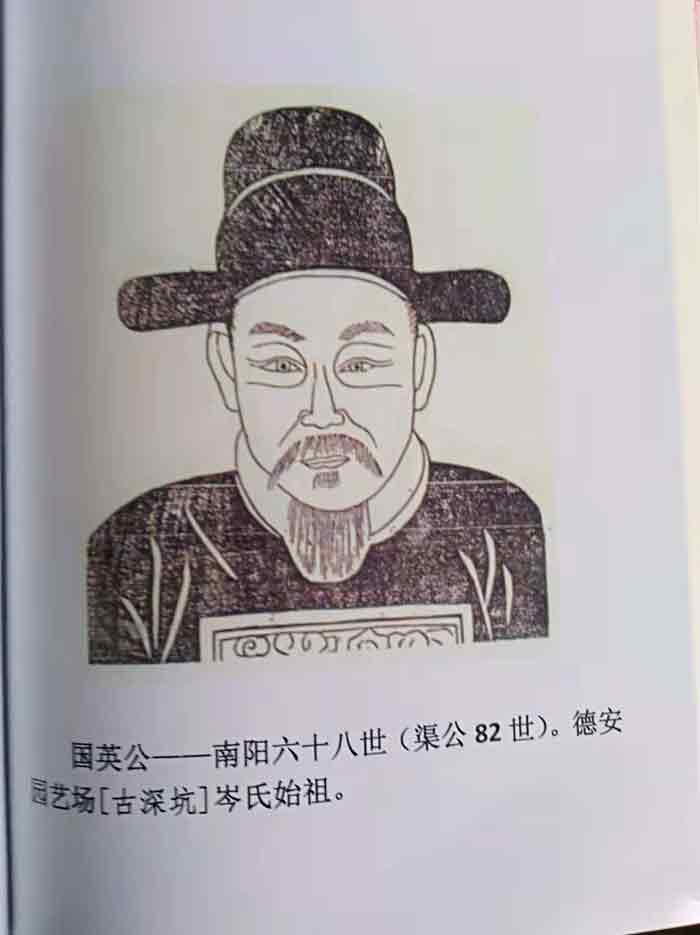 国英公——南阳六十八世（渠公82世）。德安
园艺场[古深坑]岑氏始祖。